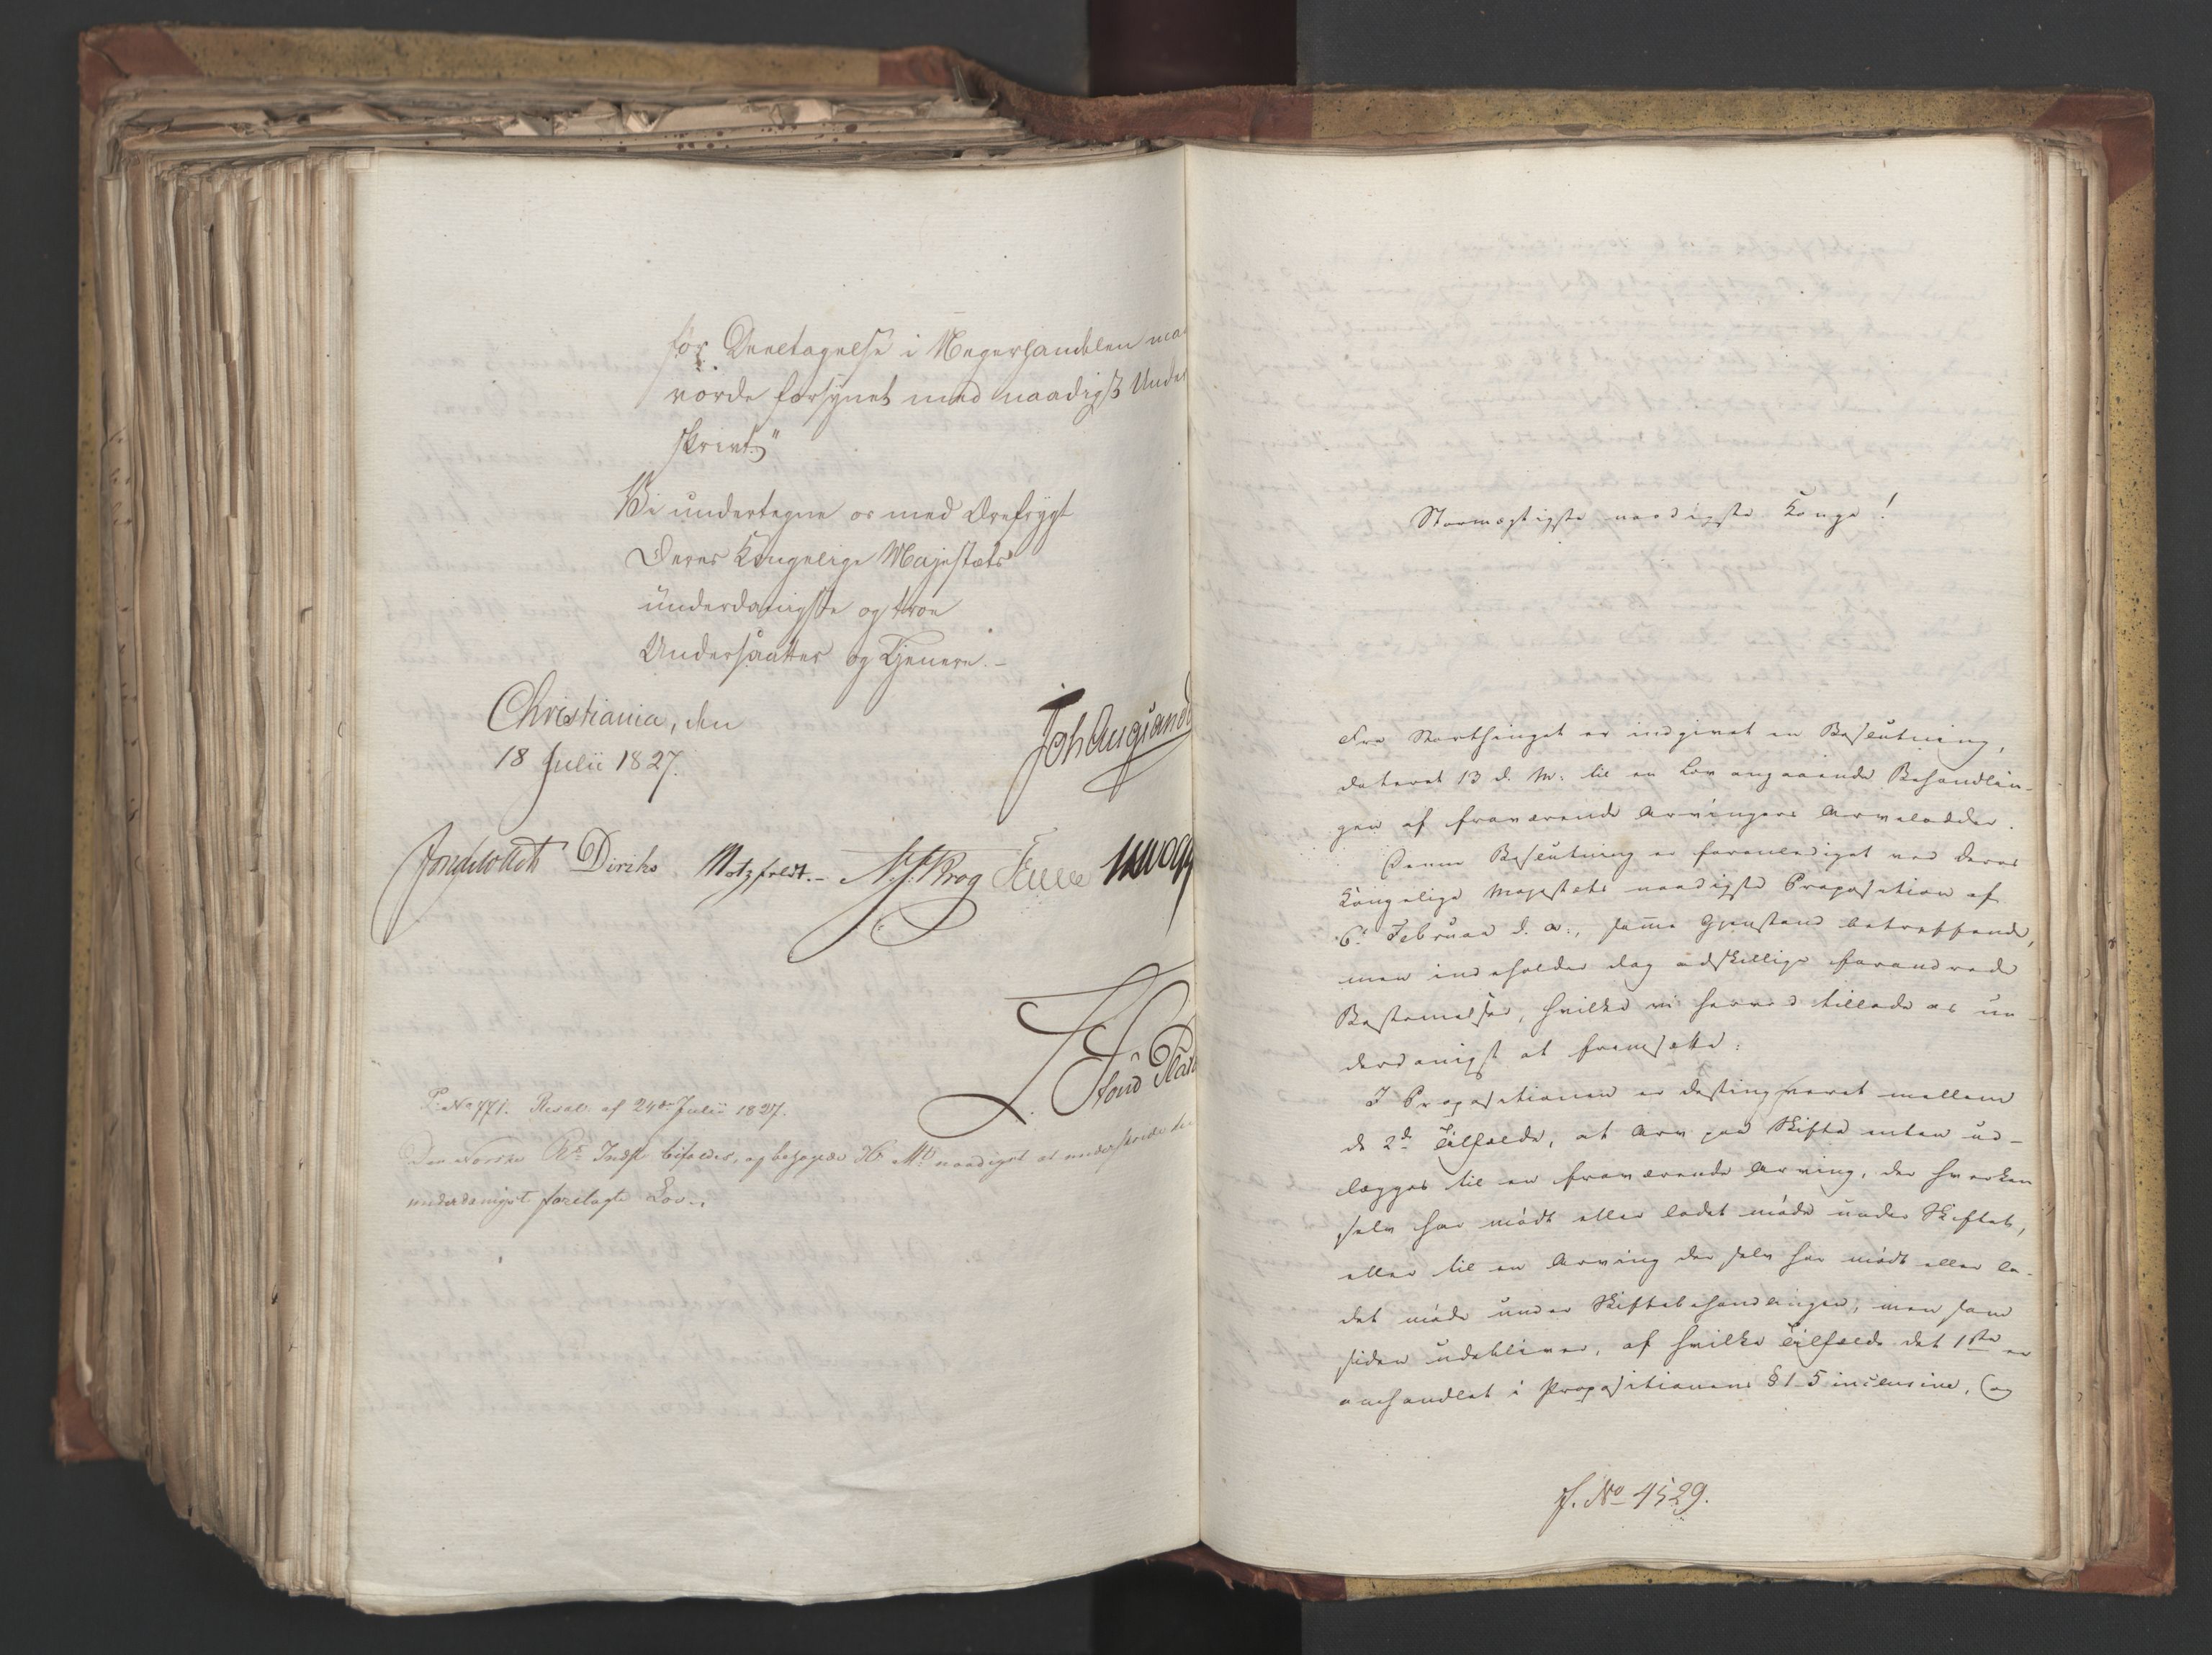 for Deeltagelse i Negerhandelen maa
vorde forsynet med naadigst Under
skrivt."
Vi undertegne os med Ærefrygt
Deres Kongelige Majestæts
underdanigste og troe
Undersaatter og Tjenere.-
Christiania, den
18 Julii 1827.
Joh Aug Sand
Collett Diriks Motzfeldt.- Krog
P. No 771. Resol. af 24de Julii 1827.
Den norske Rs Indst. bifaldes, og behagede H. M. naadigst at underskrive den
underdanigst forelagte Lov.-
Stormægtigste naadigste Konge!
Fra Storthinget er indgivet en Beslutning,
dateret 13 d. M. til en Lov angaaende Behandlin-
gen af fraværende Arvingers Arvelodder.
Denne Beslutning er foranlediget ved Deres
Kongelige Majestæts naadigste Proposition af
6te Februar d. A., samme Gjenstand betreffende,
men indeholder dog adskillige forandrede
Bestemmelser, hvilke vi herved tillade os un-
derdanigst at fremsætte.
I Propositionen er destingveret mellem
de 2de Tilfælde, at Arv paa Skifte enten ud-
lægges til en fraværende Arving, der hverken
selv har mødt eller ladet møde under Skiftet,
eller til en Arving der selv har mødt eller la-
det møde under Skiftebehandlingen, men som
siden udebliver, af hvilke Tilfælde det 1ste er
omhandlet i Propositionens § 1-5 inclusive, og
J. No 4529.